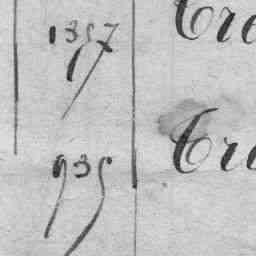 1357 Cre
935 Cre